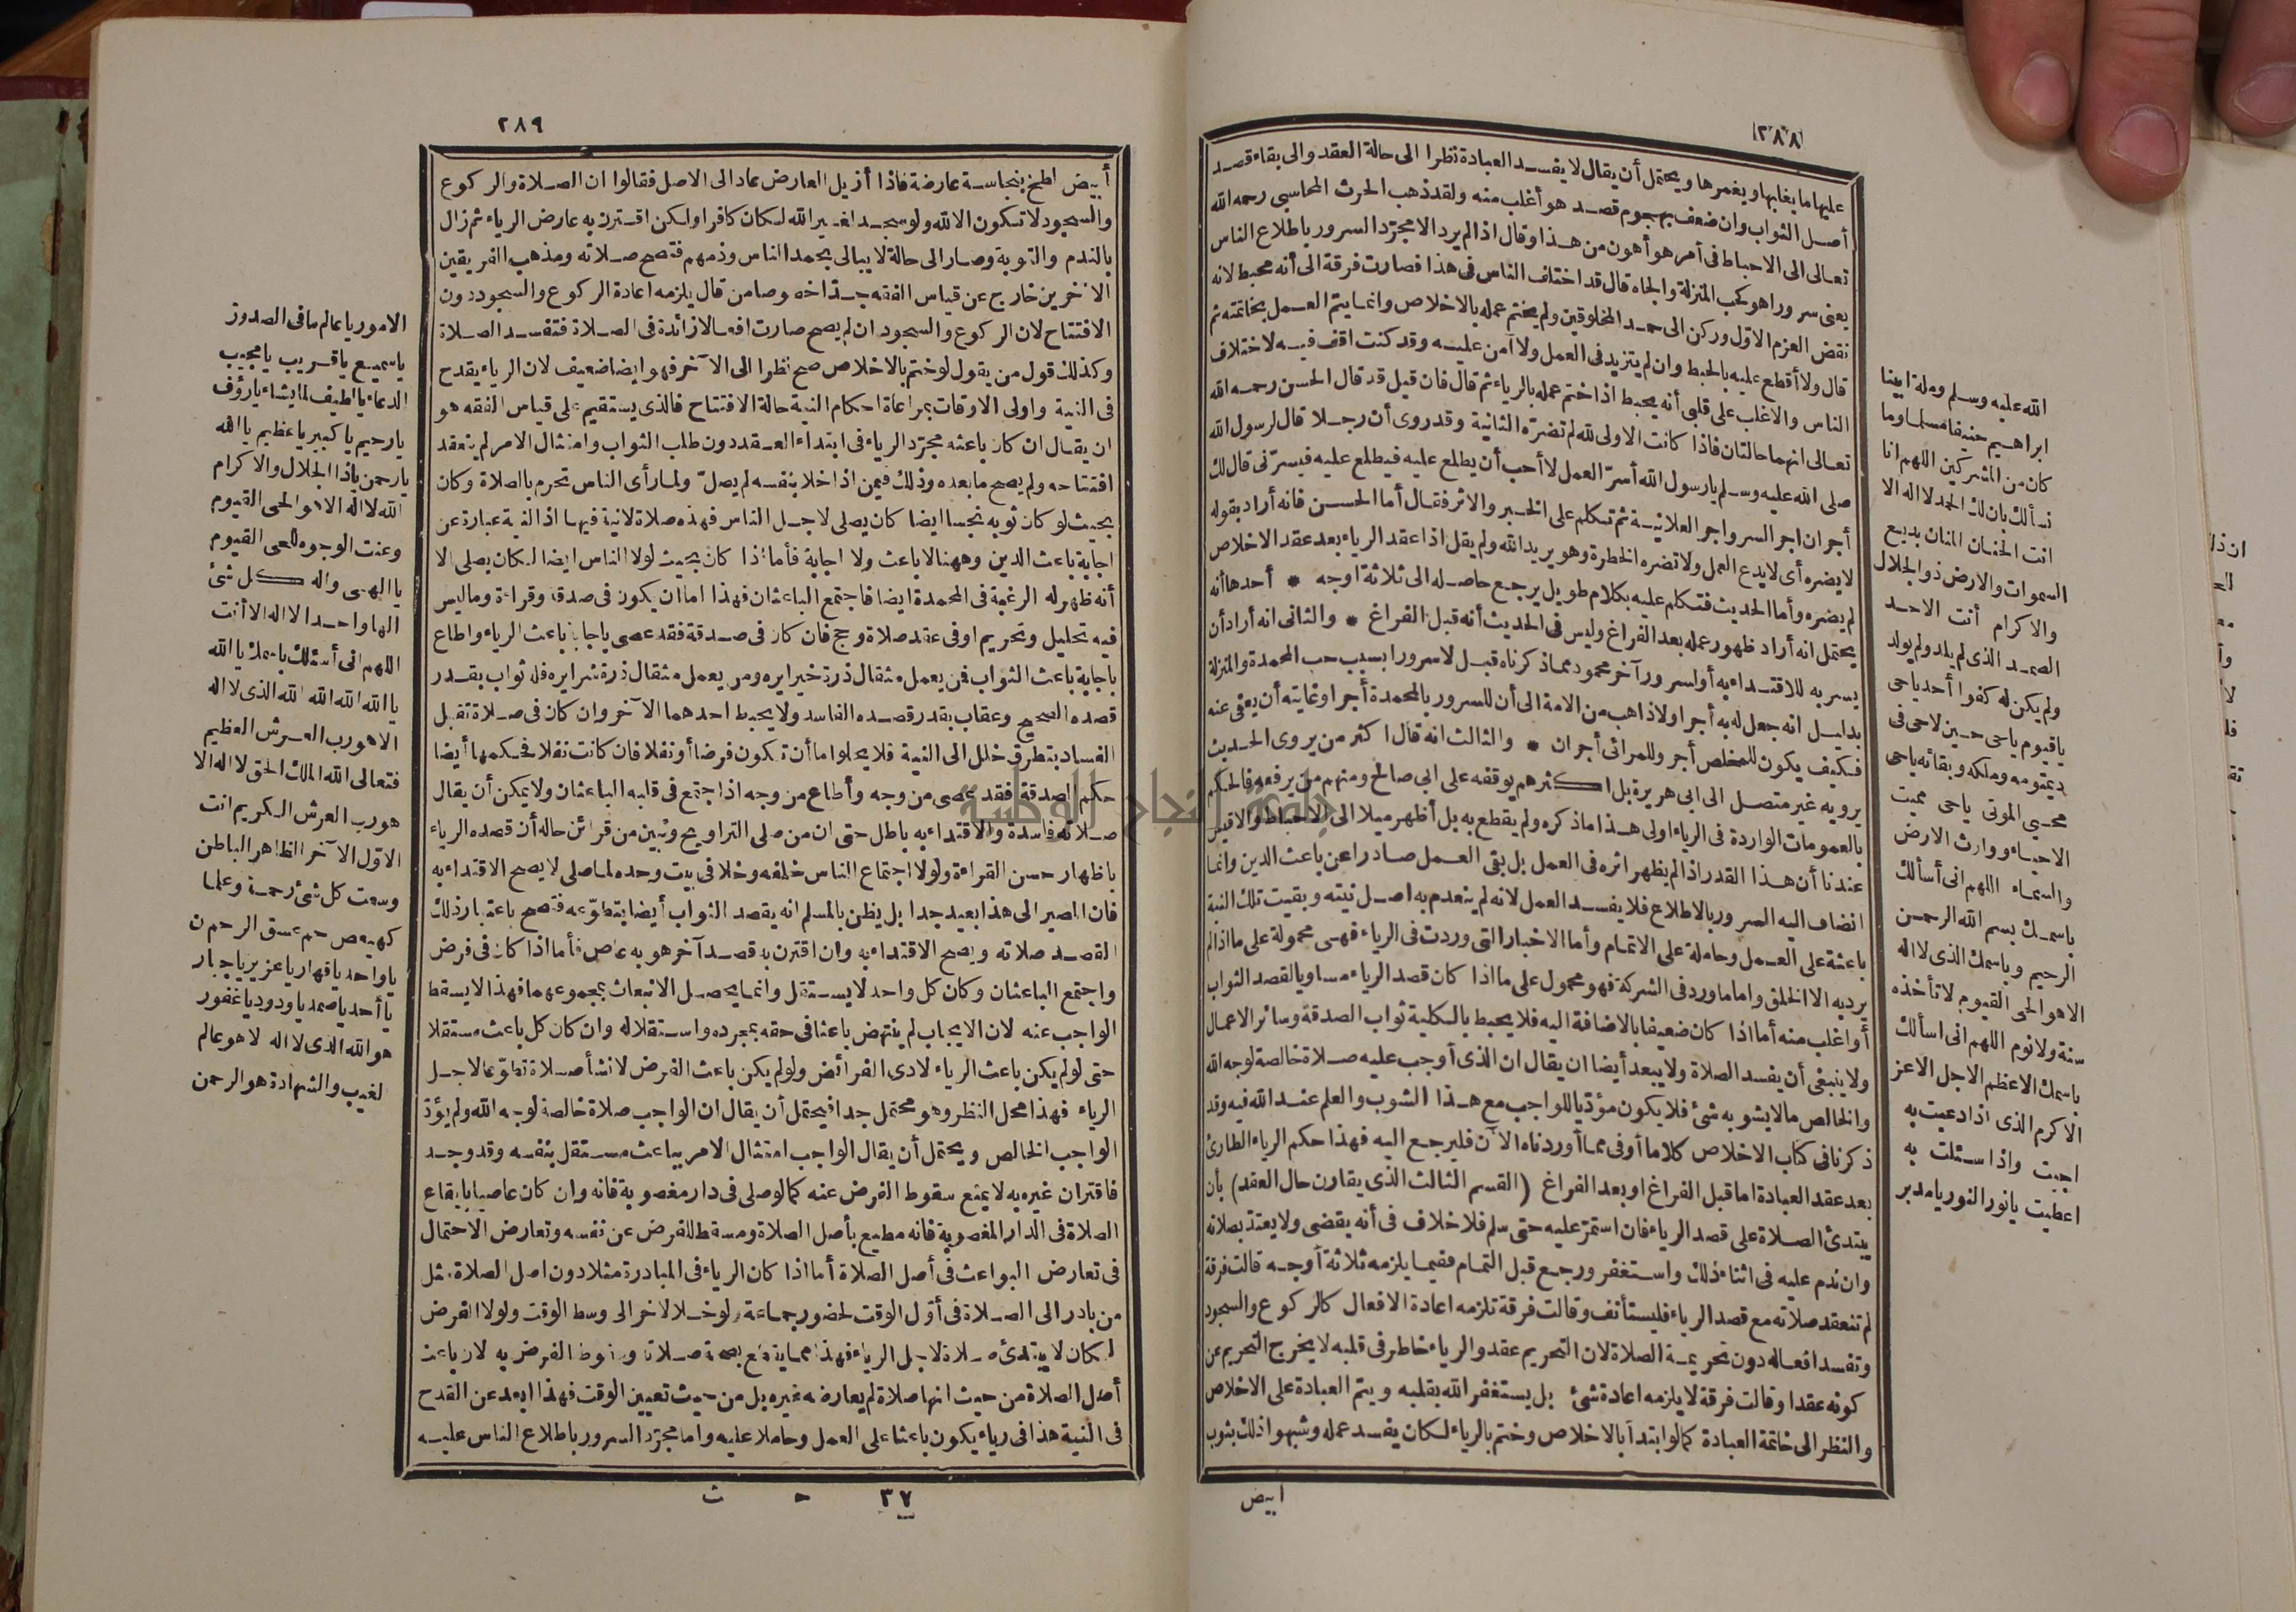 ٢٨٨
عليها ما يغلبها ويغمرها ويحتمل أن يقال لا يفسد العبادة نظرا الى حالة العقد والى بقاء قصد
أصل الثواب وان ضعف بهجوم قصد هو أغلب منه ولقد ذهب الحرث المحاسبي رحمه الله
تعالى الى الاحباط في أمر هو أهون من هذا وقال اذا لم يرد الا مجرّد السرور باطلاع الناس
يعنى سرورا هو كحب المنزلة والجاه قال قد اختلف الناس في هذا فصارت فرقة الى أنه محبط لانه
نقض العزم الاوّل وركن الى حمد المخلوقين ولم يختم عمله بالاخلاص وانما يتم العمل بخاتمته ثم
قال ولا أقطع عليه بالحبط وان لم يتزيد في العمل ولا آمن عليه وقد كنت اقف فيه لاختلاف
الناس والاغلب على قلبي أنه يحبط اذا ختم عمله بالرياء ثم قال فان قيل قد قال الحسن رحمه الله
تعالى انهما حالتان فاذا كانت الاولى لله لم تضرّه الثانية وقد روى أن رجلا قال لرسول الله
صلى الله عليه وسلم يارسول الله أسرّ العمل لا أحب أن يطلع عليه فيطلع عليه فيسرّنى قال لك
أجران اجر السر واجر العلانية ثم تكلم على الخبر والاثر فقال أما الحسن فانه أراد بقوله
لا يضره أى لا يدع العمل ولا تضره الخطرة وهو يريد الله ولم يقل اذا عقد الرياء بعد عقد الاخلاص
لم يضره وأما الحديث فتكلم عليه بكلام طويل يرجع حاصله الى ثلاثة اوجه * أحدها أنه
يحتمل انه أراد ظهور عمله بعد الفراغ وليس في الحديث أنه قبل الفراغ * والثاني انه أراد أن
يسر به للاقتداء به أو لسرور آخر محمود مما ذكرناه قبل لا سرورا بسبب حب المحمدة والمنزلة
بدليل انه جعل له به أجرا ولا ذاهب من الامة الى أن للسرور بالمحمدة أجرا وغايته أن يعفى عنه
فكيف يكون للمخلص أجر وللمرائى أجران * والثالث انه قال اكثر من يروى الحديث
يرويه غير متصل الى ابى هريرة بل اكثرهم يوقفه على ابى صالح ومنهم من يرفعه فالحكم
بالعمومات الواردة في الرياء اولى هذا ما ذكره ولم يقطع به بل أظهر ميلا الى الاحباط والاقيس
عندنا أن هذا القدر اذا لم يظهر اثره في العمل بل بقى العمل صادرا عن باعث الدين وانما
انضاف اليه السرور بالاطلاع فلا يفسد العمل لانه لم ينعدم به اصل نيته وبقيت تلك النية
باعثة على العمل وحاملة على الاتمام وأما الاخبار التى وردت في الرياء فهى محمولة على ما اذا لم
يرد به الا الخلق واما ما ورد في الشركة فهو محمول على ما اذا كان قصد الرياء مساويا لقصد الثواب
أو اغلب منه أما اذا كان ضعيفا بالاضافة اليه فلا يحبط بالكلية ثواب الصدقة وسائر الاعمال
ولا ينبغى أن يفسد الصلاة ولا يبعد أيضا ان يقال ان الذى أوجب عليه صلاة خالصة لوجه الله
والخالص ما لا يشوبه شئ فلا يكون مؤدّيا للواجب مع هذا الشوب والعلم عند الله فيه وقد
ذكرنا في كتاب الاخلاص كلاما أوفى مما أوردناه الآن فليرجع اليه فهذا حكم الرياء الطارئ
بعد عقد العبادة اما قبل الفراغ او بعد الفراغ (القسم الثالث الذى يقارن حال العقد) بأن
يبتدئ الصلاة على قصد الرياء فان استمرّ عليه حتى سلم فلا خلاف في أنه يقضى ولا يعتدّ بصلاته
وان ندم عليه في اثناء ذلك واستغفر ورجع قبل التمام ففيما يلزمه ثلاثة أوجه قالت فرقة
لم تنعقد صلاته مع قصد الرياء فليستأنف وقالت فرقة تلزمه اعادة الافعال كالركوع والسجود
وتفسد افعاله دون تحريمة الصلاة لان التحريم عقد والرياء خاطر في قلبه لا يخرج التحريم عن
كونه عقدا وقالت فرقة لا يلزمه اعادة شئ بل يستغفر الله بقلبه ويتم العبادة على الاخلاص
والنظر الى خاتمة العبادة كما لو ابتدأ بالاخلاص وختم بالرياء لكان يفسد عمله وشبهوا ذلك بثوب
ابيض
الله عليه وسلم وملة ابينا
ابراهيم حنيفا مسلما وما
كان من المشركين اللهم انا
نسألك بان لك الحمد لا اله الا
انت الحنان المنان بديع
السموات والارض ذو الجلال
والاكرام أنت الاحد
الصمد الذى لم يلد ولم يولد
ولم يكن له كفوا أحد ياحى
ياقيوم ياحى حين لاحى فى
ديمومة ملكه وبقائه ياحى
محيى الموتى ياحى مميت
الاحياء ووارث الارض
والسماء اللهم انى أسألك
باسمك بسم الله الرحمن
الرحيم وباسمك الذى لا اله
الا هو الحى القيوم لا تأخذه
سنة ولا نوم اللهم انى اسألك
باسمك الاعظم الاجل الاعز
الاكرم الذى اذا دعيت به
اجبت واذا سئلت به
اعطيت يانور النور يا مدبر
٢٨٩
أبيض لطخ بنجاسة عارضة فاذا أزيل العارض عاد الى الاصل فقالوا ان الصلاة والركوع
والسجود لا تكون الا لله ولو سجد لغير الله لكان كافرا ولكن اقترن به عارض الرياء ثم زال
بالندم والتوبة وصار الى حالة لا يبالى بحمد الناس وذمهم فتصح صلاته ومذهب الفريقين
الآخرين خارج عن قياس الفقه جدّا خصوصا من قال يلزمه اعادة الركوع والسجود دون
الافتتاح لان الركوع والسجود ان لم يصح صارت افعالا زائدة في الصلاة فتفسد الصلاة
وكذلك قول من يقول لو ختم بالاخلاص صح نظرا الى الآخر فهو ايضا ضعيف لان الرياء يقدح
في النية واولى الاوقات بمراعاة احكام النية حالة الافتتاح فالذى يستقيم على قياس الفقه هو
ان يقال ان كان باعثه مجرّد الرياء في ابتداء العقد دون طلب الثواب وامتثال الامر لم ينعقد
افتتاحه ولم يصح ما بعده وذلك فيمن اذا خلا بنفسه لم يصلّ ولما رأى الناس تحرم بالصلاة وكان
بحيث لو كان ثوبه نجسا ايضا كان يصلى لاجل الناس فهذه صلاة لا نية فيها اذ النية عبارة عن
اجابة باعث الدين وههنا لا باعث ولا اجابة فأما اذا كان بحيث لولا الناس ايضا لكان يصلى الا
أنه ظهر له الرغبة في المحمدة ايضا فاجتمع الباعثان فهذا اما ان يكون في صدقة وقراءة وما ليس
فيه تحليل وتحريم او في عقد صلاة وحج فان كان في صدقة فقد عصى باجابة باعث الرياء واطاع
باجابة باعث الثواب فمن يعمل مثقال ذرة خيرا يره ومن يعمل مثقال ذرة شرا يره فله ثواب بقدر
قصده الصحيح وعقاب بقدر قصده الفاسد ولا يحبط احدهما الآخر وان كان في صلاة تقبل
الفساد بتطرق خلل الى النية فلا يخلو اما أن تكون فرضا أو نفلا فان كانت نفلا فحكمها أيضا
حكم الصدقة فقد عصى من وجه وأطاع من وجه اذا اجتمع في قلبه الباعثان ولا يمكن أن يقال
صلاته فاسدة والاقتداء به باطل حتى ان من صلى التراويح وتبين من قرائن حاله أن قصده الرياء
باظهار حسن القراءة ولولا اجتماع الناس خلفه وخلا في بيت وحده لما صلى لا يصح الاقتداء به
فان المصير الى هذا بعيد جدا بل يظن بالمسلم انه يقصد الثواب أيضا بتطوّعه فتصح باعتبار ذلك
القصد صلاته ويصح الاقتداء به وان اقترن به قصد آخر هو به عاص فأما اذا كان في فرض
واجتمع الباعثان وكان كل واحد لا يستقل وانما يحصل الانبعاث بمجموعهما فهذا لا يسقط
الواجب عنه لان الايجاب لم ينتهض باعثا في حقه بمجرده واستقلاله وان كان كل باعث مستقلا
حتى لو لم يكن باعث الرياء لادى الفرائض ولو لم يكن باعث الفرض لانشأ صلاة تطوّعا لاجل
الرياء فهذا محل النظر وهو محتمل جدا فيحتمل أن يقال ان الواجب صلاة خالصة لوجه الله ولم يؤدّ
الواجب الخالص ويحتمل أن يقال الواجب امتثال الامر بباعث مستقل بنفسه وقد وجد
فاقتران غيره به لا يمنع سقوط الفرض عنه كما لو صلى في دار مغصوبة فانه وان كان عاصيا بايقاع
الصلاة في الدار المغصوبة فانه مطيع بأصل الصلاة ومسقط للفرض عن نفسه وتعارض الاحتمال
في تعارض البواعث في أصل الصلاة أما اذا كان الرياء في المبادرة مثلا دون اصل الصلاة مثل
من بادر الى الصلاة في أوّل الوقت لحضور جماعة ولو خلا لاخر الى وسط الوقت ولولا الفرض
لكان لا يبتدئ صلاة لاجل الرياء فهذا مما يقطع بصحة صلاته وسقوط الفرض به لان باعث
أصل الصلاة من حيث انها صلاة لم يعارضه غيره بل من حيث تعيين الوقت فهذا ابعد عن القدح
في النية هذا في رياء يكون باعثا على العمل وحاملا عليه واما مجرّد السرور باطلاع الناس عليه
٣٧ ح ث
الامور ياعالم مافى الصدور
ياسميع ياقريب يامجيب
الدعاء يالطيف لما يشاء يارؤف
يارحيم ياكبير ياعظيم يا الله
يارحمن ياذا الجلال والاكرام
الله لا اله الا هو الحى القيوم
وعنت الوجوه للحى القيوم
يا الهى واله كل شئ
الها واحدا لا اله الا أنت
اللهم انى أسئلك باسمك يا الله
يا الله الله الله الله الذى لا اله
الا هو رب العرش العظيم
فتعالى الله الملك الحق لا اله الا
هو رب العرش الكريم انت
الاوّل الآخر الظاهر الباطن
وسعت كل شئ رحمة وعلما
كهيعص حم عسق الرحمن
ياواحد ياقهار ياعزيز ياجبار
ياأحد ياصمد ياودود ياغفور
هو الله الذى لا اله الا هو عالم
لغيب والشهادة هو الرحمن
جامعة النجاح الوطنية